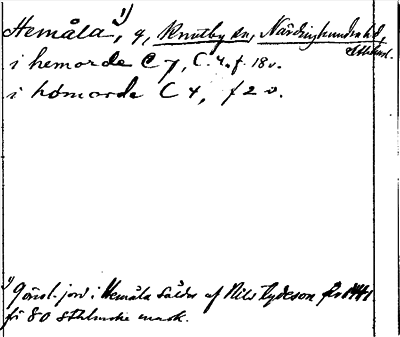 Hemåla¹⁾, g, Knutby sn, Närdinghundra hd,
Sthlms l.
i hemorde C 7, C. 4. f. 18 v.
i homorde C 4, f 2 v.
¹⁾ Gård. jord i Hemåla säldes af Nils Tydeson
för 80 sthlmske mark.